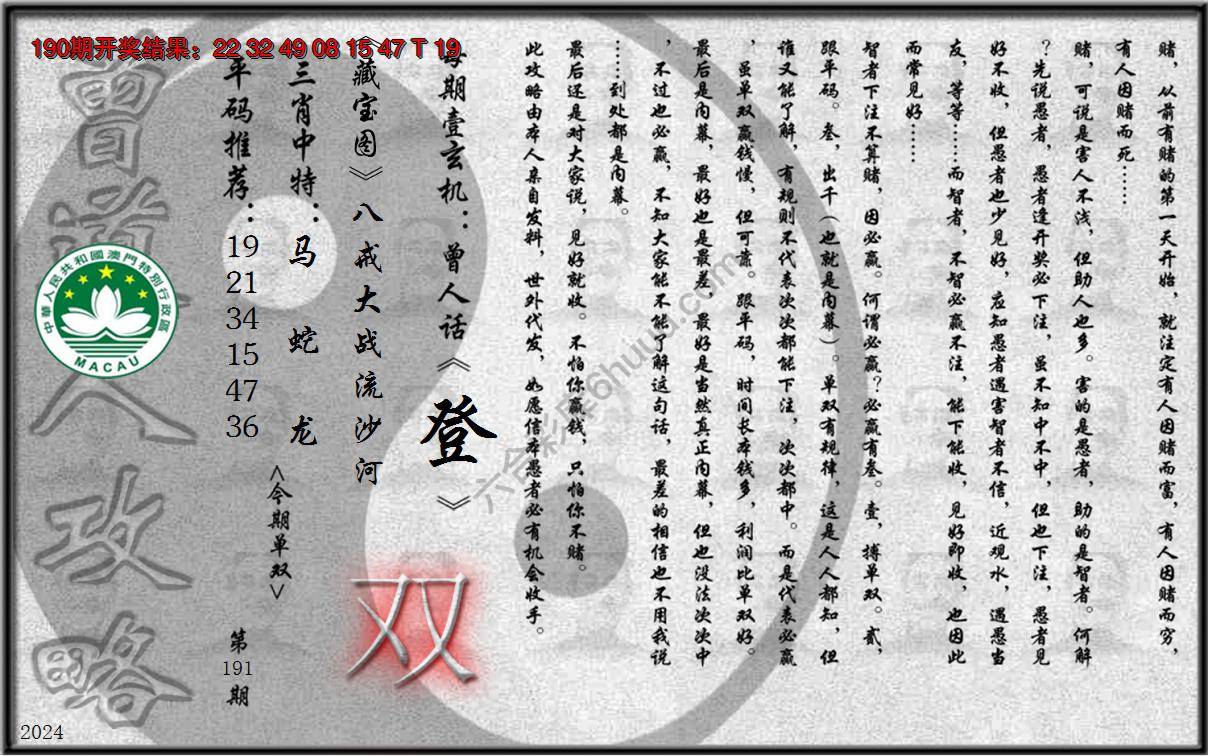 190期开奖结果：22 32 49 08 15 47 T 19
赌，从前有赌的第一天开始，就注定有人因赌而富，有人因赌而穷，
有人因赌而死……
赌，可说是害人不浅，但助人也多。害的是愚者，助的是智者。何解
？先说愚者，愚者逢开奖必下注，虽不知中不中，但也下注，愚者见
好不收，但愚者也少见好，应知愚者遇害智者不信，近观水，遇愚当
友，等等……而智者，不智必赢不注，能下能收，见好即收，也因此
而常见好……
智者下注不算赌，因必赢。何谓必赢？必赢有叁。壹，搏单双。贰，
跟平码。叁，出千（也就是内幕）。单双有规律，这是人人都知，但
谁又能了解，有规则不代表次次都能下注，次次都中。而是代表必赢
，虽单双赢钱慢，但可靠。跟平码，时间长本钱多，利润比单双好。
最后是内幕，最好也是最差，最好是当然真正内幕，但也没法次次中
，不过也必赢，不知大家能不能了解这句话，最差的相信也不用我说
……到处都是内幕。
最后还是对大家说，见好就收。不怕你赢钱，只怕你不赌。
此攻略由本人亲自发料，世外代发，如愿信本愚者必有机会收手。
每期壹玄机：曾人话《登》
《藏宝图》八戒大战流沙河
三肖中特：马 蛇 龙
平码推荐：19 21 34 15 47 36
<今期单双>
双
第191期
曾道人攻略
中華人民共和國澳門特別行政區
MACAU
六合彩库6huuu.com
2024